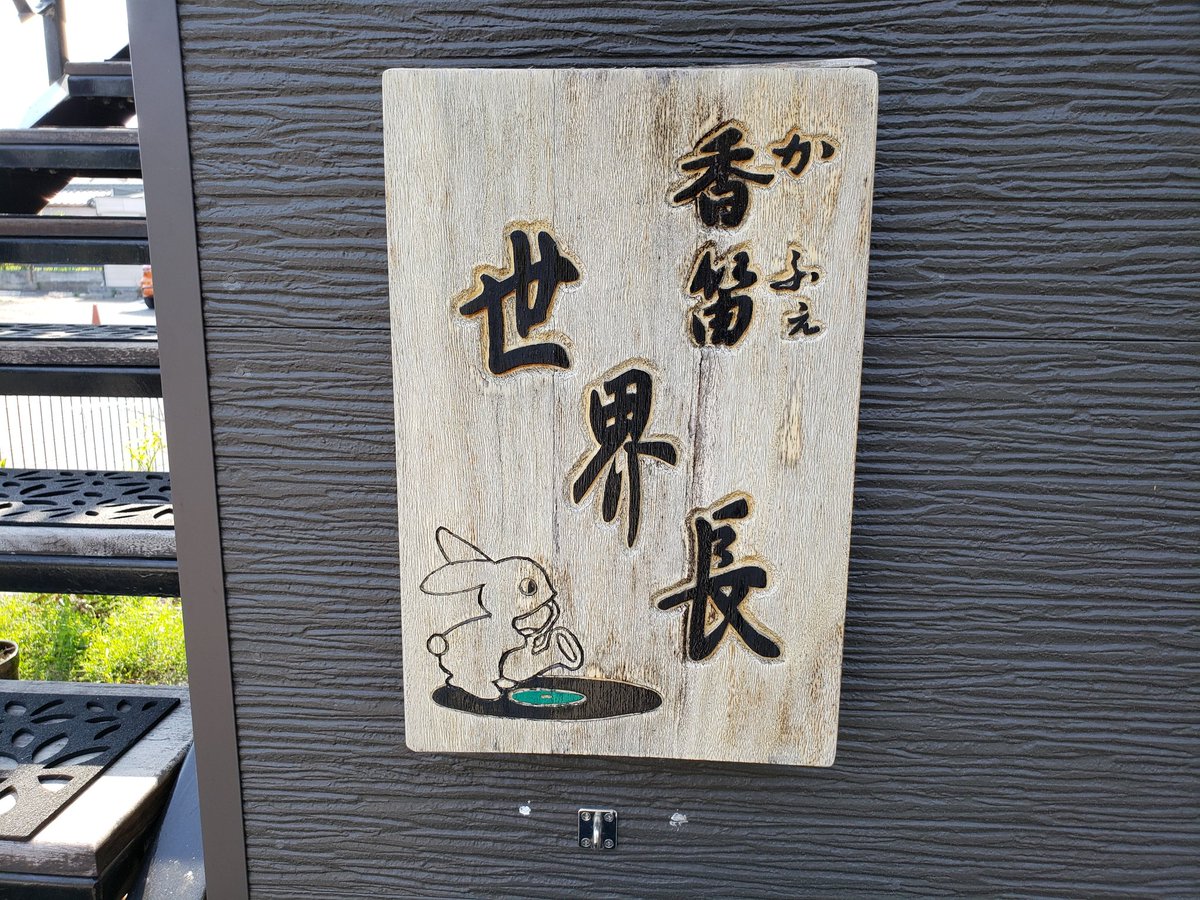 香笛
かふえ
世界長